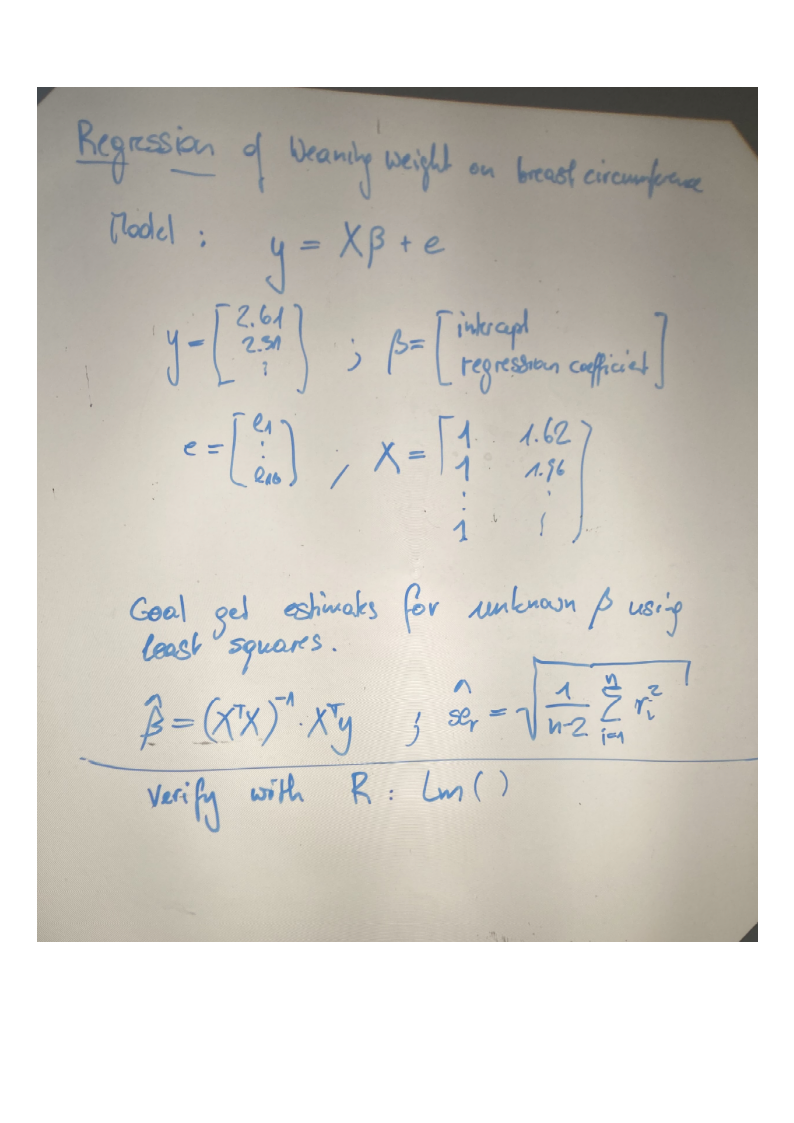 Regression of Weaning weight on breast circumference
Model : y = Xβ + e
y = [ 2.61 ; β = [ intercept
2.31 regression coefficient ]
⋮ ]
e = [ e1 , X = [ 1 1.62
⋮ 1 1.96
e16 ] ⋮ ⋮
1 ⋮ ]
Goal get estimates for unknown β using
least squares.
β̂ = (XᵀX)⁻¹ · Xᵀy ; ŝe_r = √( 1/(n-2) Σ_{i=1}^{n} r_i² )
Verify with R : lm ( )